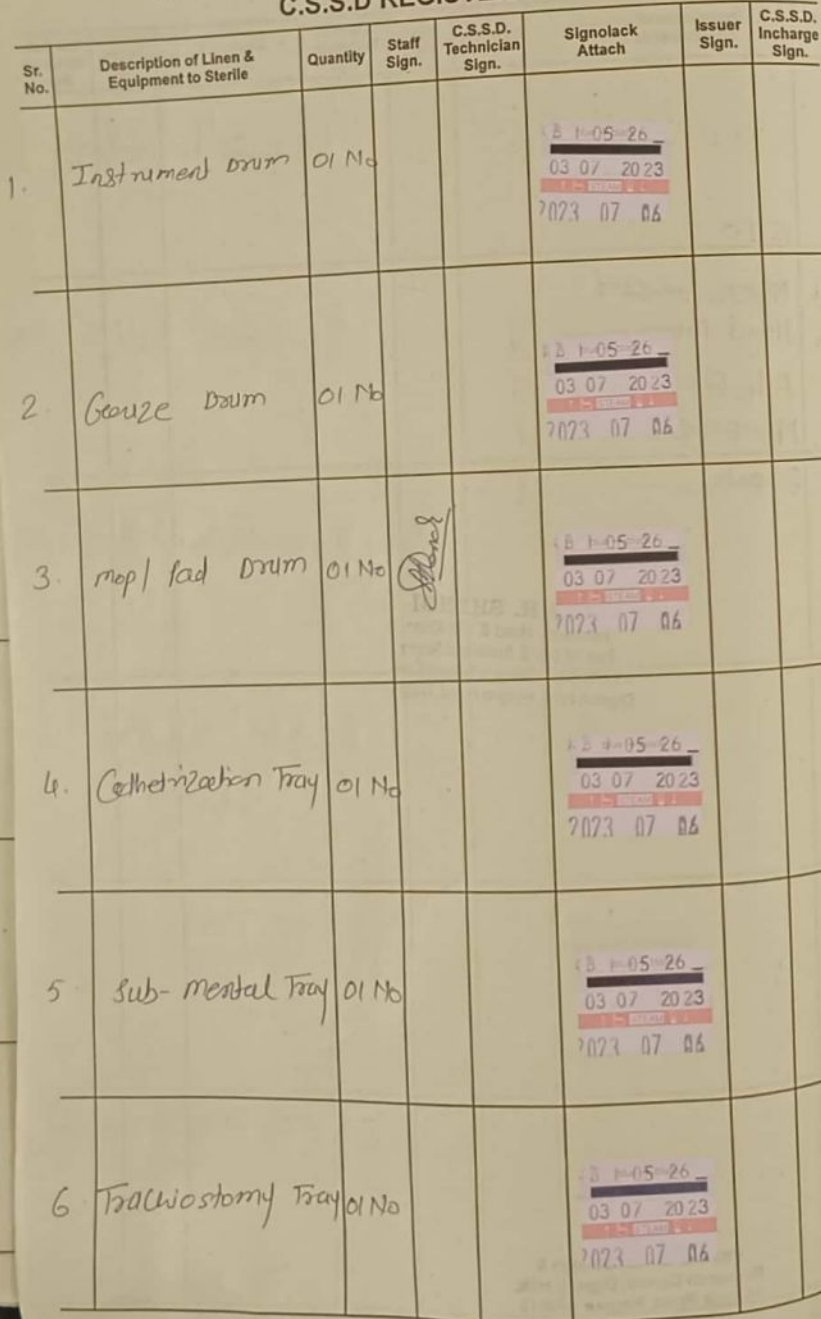 C.S.S.D
Sr. No.
Description of Linen & Equipment to Sterile
Quantity
Staff Sign.
C.S.S.D. Technician Sign.
Signolack Attach
Issuer Sign.
C.S.S.D. Incharge Sign.
1. Instrument Drum 01 No
05 26
03 07 2023
STEAM
2023 07 06
2 Gauze Drum 01 No
05 26
03 07 2023
STEAM
2023 07 06
3. mop/ Pad Drum 01 No
05 26
03 07 2023
STEAM
2023 07 06
4. Cathetrization Tray 01 No
05 26
03 07 2023
STEAM
2023 07 06
5 Sub-mental Tray 01 No
05 26
03 07 2023
STEAM
2023 07 06
6 Trachiostomy Tray 01 No
05 26
03 07 2023
STEAM
2023 07 06